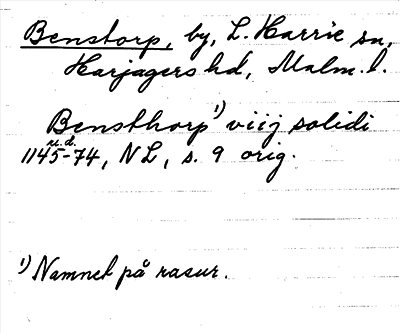 Benstorp, by, L. Harrie sn,
Harjagers hd, Malm. l.
Bensthorp¹) viij solidi
u.d.
1145-74, NL, s. 9 orig.
¹) Namnet på rasur.